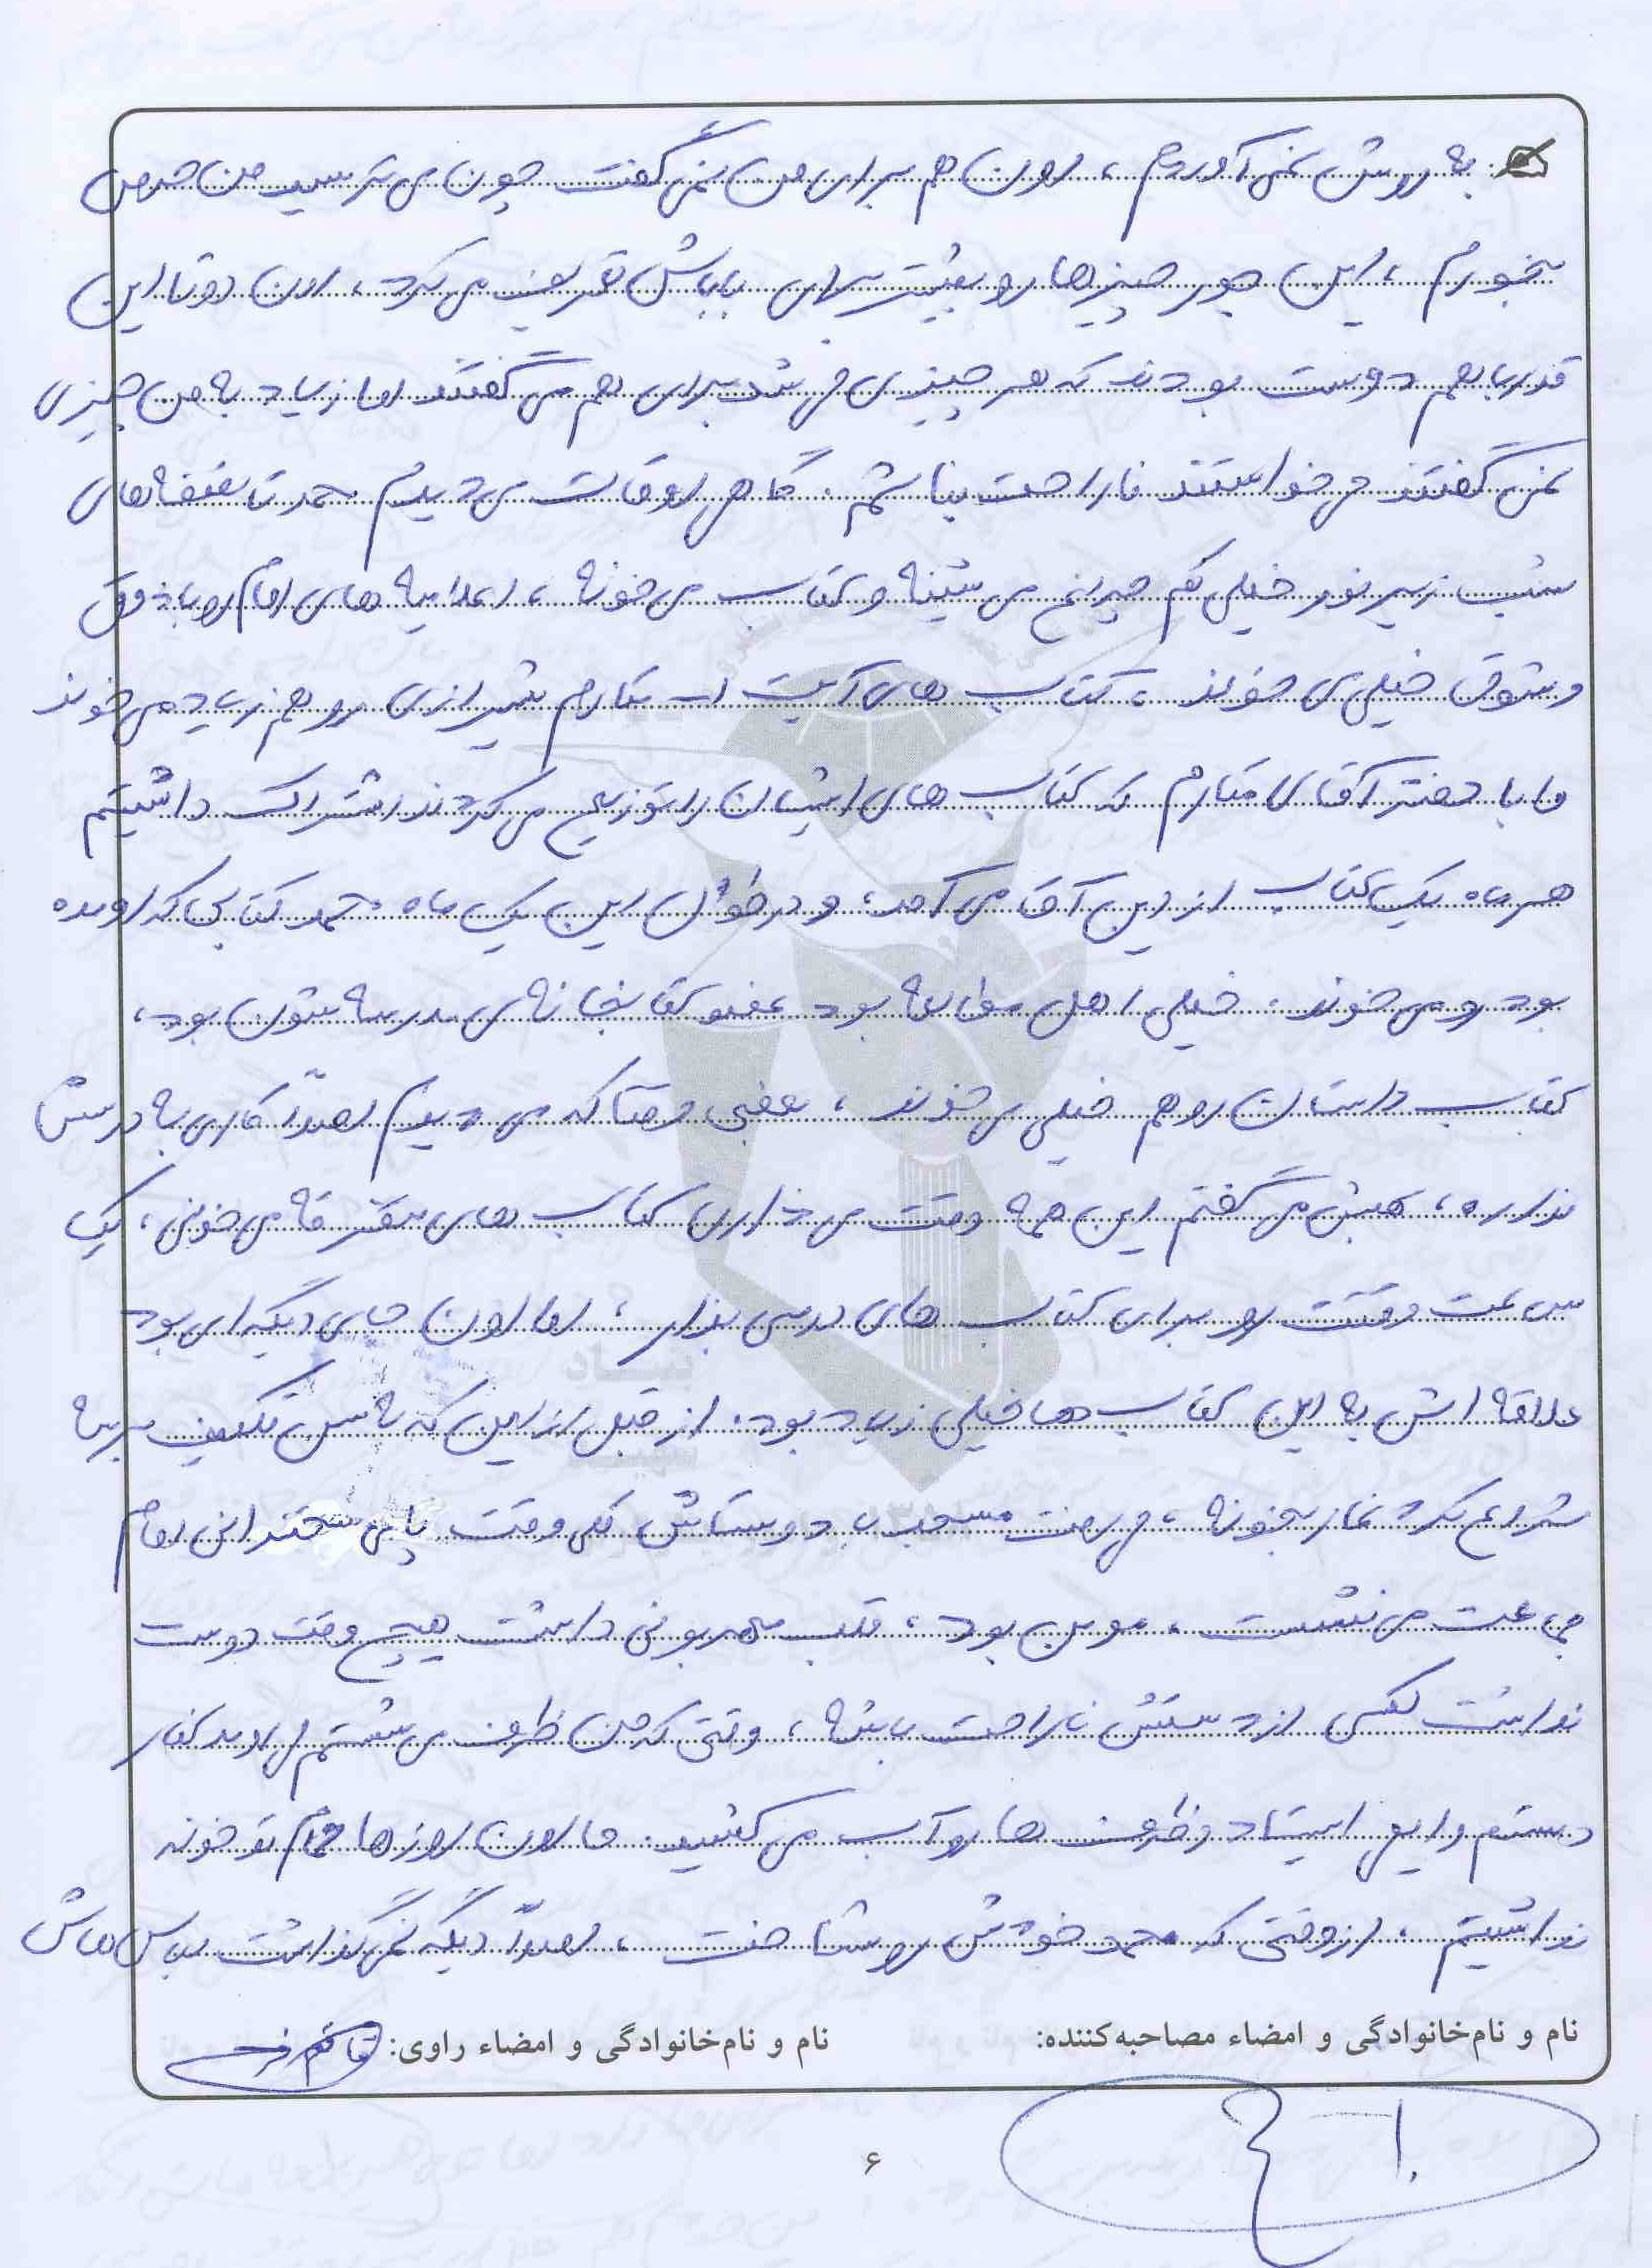 به روش نمی آوردم ، اون هم برای من نمی گفت چون می ترسید من حرص
بخورم ، این جور چیزها رو بیشتر برای باباش تعریف می کرد ، اون دوتا این
قدر با هم دوست بودند که هر چیزی می شد برای هم می گفتند اما زیاد به من چیزی
نمی گفتند می خواستند ناراحت نباشم . گاهی اوقات می دیدم محمد تا نصفه های
شب زیر نور خیلی کم چراغ می شینه و کتاب می خونه ، اعلامیه های امام رو با ذوق
و شوق خیلی می خوند ، کتاب های آیت ا... مکارم شیرازی رو هم زیاد می خوند
ما با دفتر آقای مکارم که کتاب های ایشان را توزیع می کردند اشتراک داشتیم
هر ماه یک کتاب از این آقا می آمد ، و در طول این یک ماه محمد کتابی که اومده
بود رو می خوند . خیلی اهل مطالعه بود عضو کتابخانه ی مدرسه شون بود ،
کتاب داستان رو هم خیلی می خوند ، بعضی وقتا که می دیدم اصلاً کاری به درسش
نداره ، بهش می گفتم این همه وقت می ذاری کتاب های متفرقه می خونی ، یک
ساعت وقتت رو برای کتاب های درسی بذار ، اما اون جای دیگه ای بود
علاقه اش به این کتاب ها خیلی زیاد بود . از قبل از این که به سن تکلیف برسه
شروع کرد نماز بخونه ، می رفت مسجد با دوستاش کلی وقت پای سخنرانی امام
جماعت می نشست ، مومن بود ، قلب مهربونی داشت هیچ وقت دوست
نداشت کسی از دستش ناراحت باشه ، وقتی که من ظرف می شستم می اومد کنار
دستم وایمی ایستاد و ظرف ها رو آب می کشید . ما اون روزها حمام تو خونه
نداشتیم ، از وقتی که محمد خودش رو شناخت ، اصلاً دیگه نمی گذاشت لباس هاش
نام و نام‌خانوادگی و امضاء مصاحبه‌کننده: نام و نام‌خانوادگی و امضاء راوی:
۶